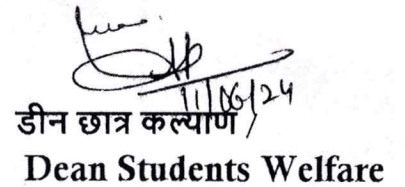 11/06/24
डीन छात्र कल्याण
Dean Students Welfare